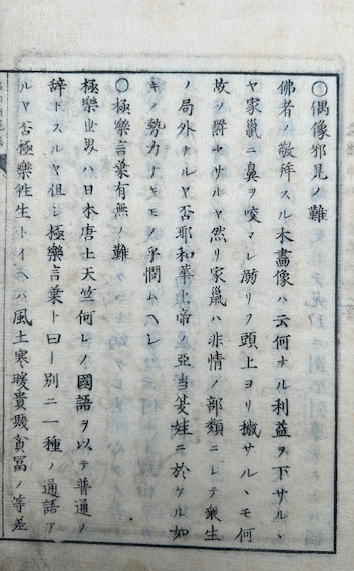 〇偶像邪見ノ難
佛者ノ敬拜スル木畫像ハ云何ナル利益ヲ下サルヽ
ヤ家鼠ニ鼻ヲ咬マレ溺リヲ頭上ヨリサルヽモ何
故ソ罸セサルヤ然リ家鼠ハ非情ノ部類ニシテ衆生
ノ局外ナルヤ否耶和華上帝ノ亞当娃ニ於ケル如
キノ勢力ナキモノ乎憫ムヘシ
〇極樂言葉有無ノ難
極樂世界ハ日本唐土天竺何レノ國語ヲ以テ普通ノ
辞トスルヤ但シ極樂言葉ト曰別ニ一種ノ通語ア
ルヤ否極樂徃生トイヘハ風土寒暖貴賤貧冨ノ等差